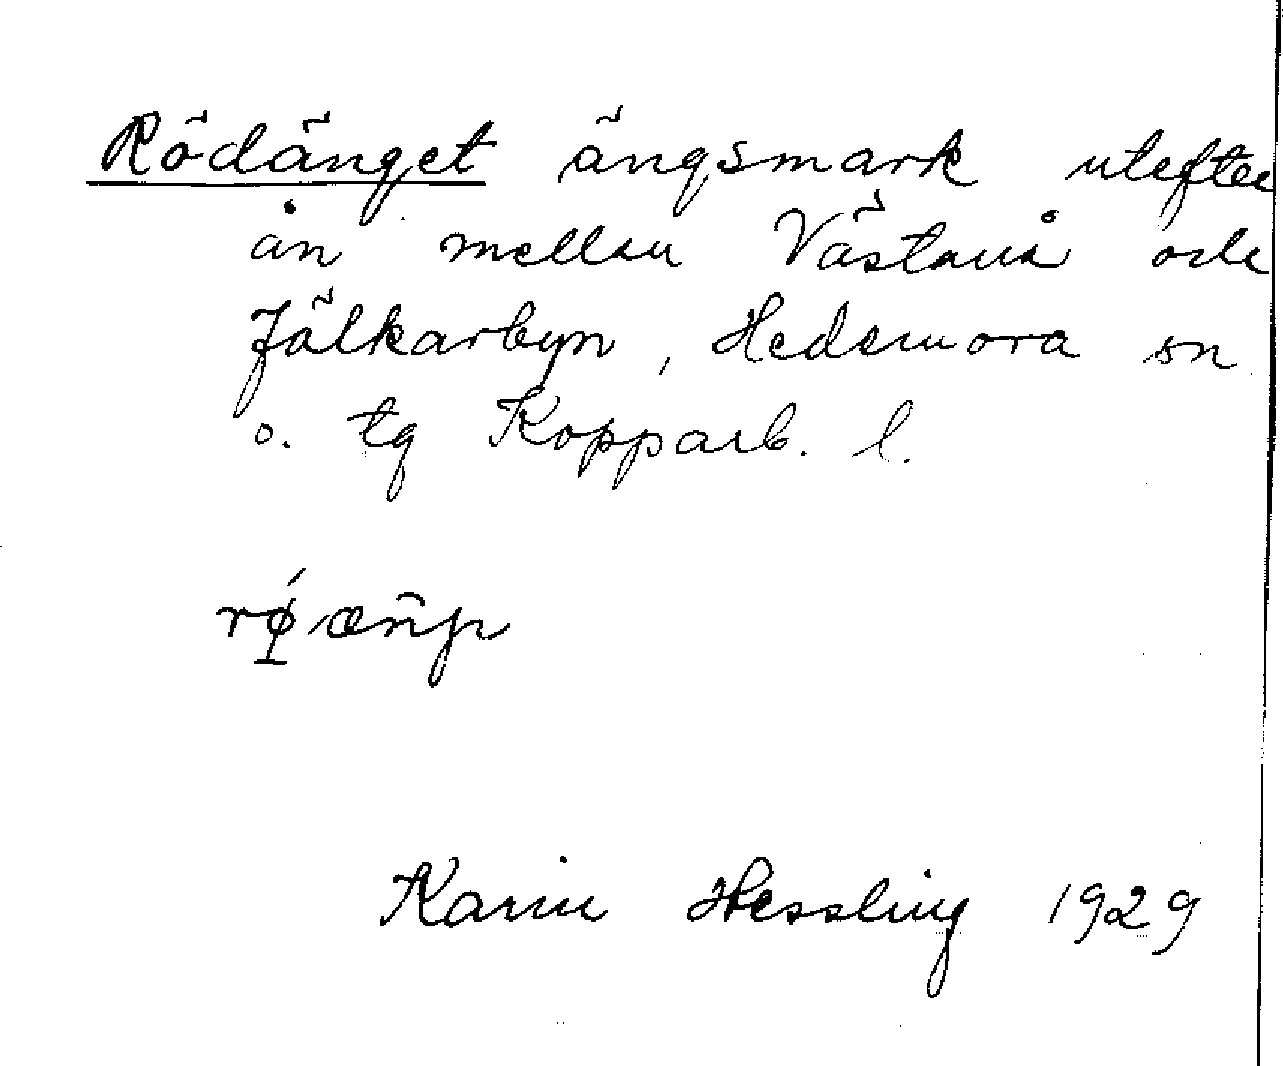 Rödänget ängsmark utefter
ån mellan Västanå och
Jälkarbyn, Hedemora sn
o. tg Kopparb. l.
Karin Hessling 1929